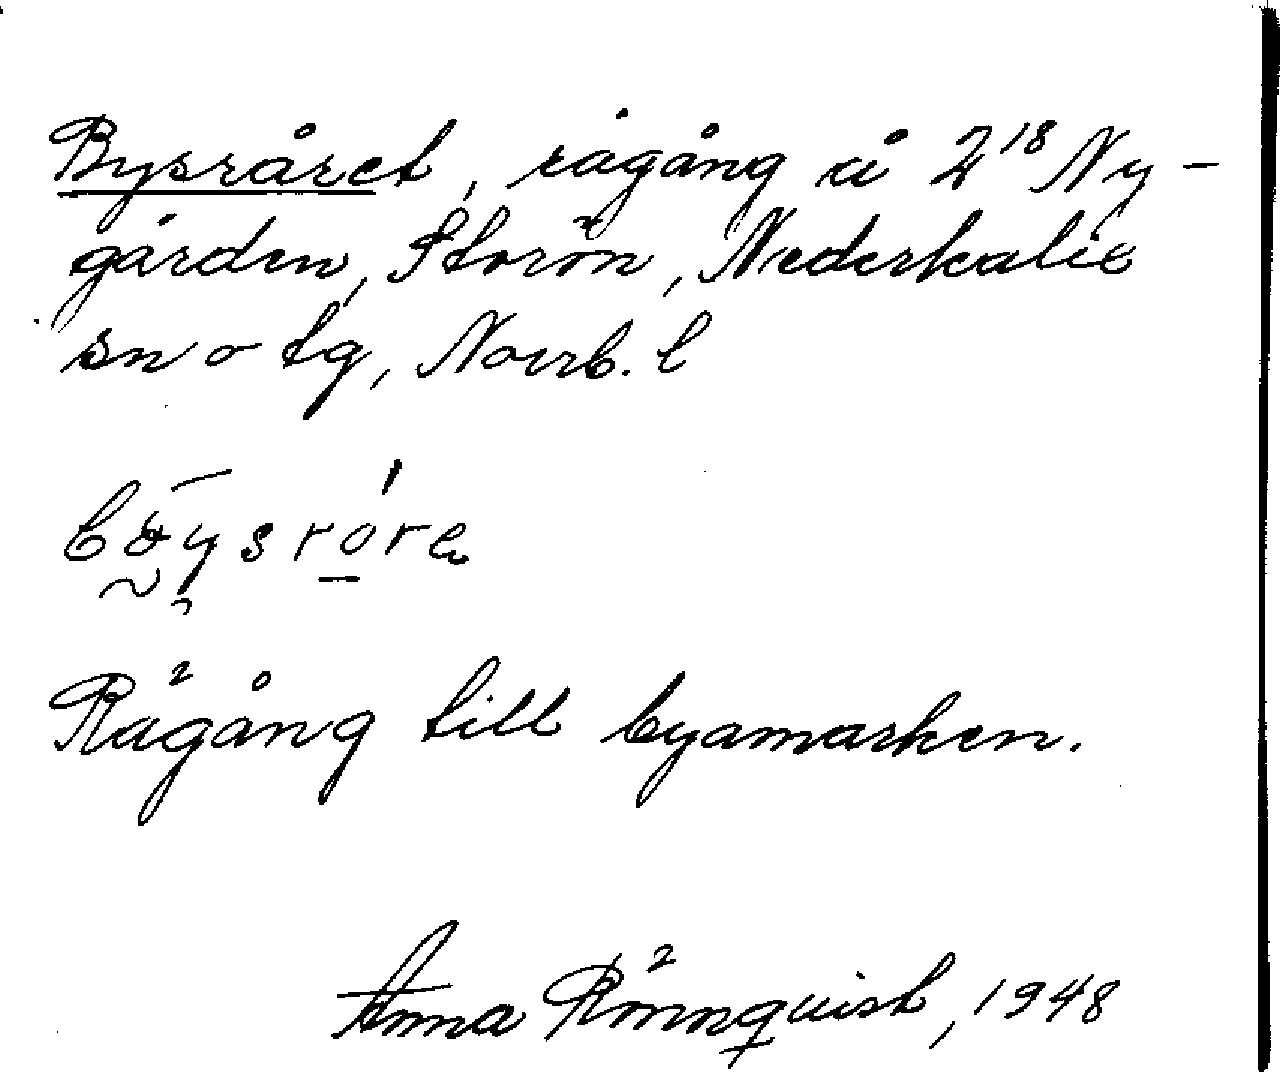 Bysråret, rågång å 2¹⁸ Ny-
gården, Storön, Nederkalix
sn o tg, Norrb. l
Rågång till byamarken.
Anna Rönnquist, 1948